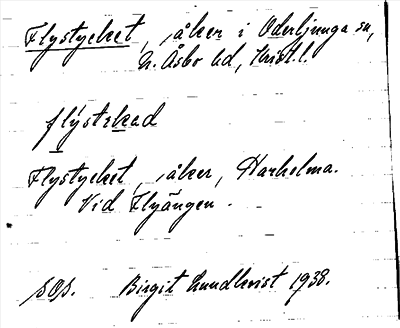 Flystycket, åker i Oderljunga sn,
N. Åsbo hd, Krist.l.
flýstekad
Flystycket, åker, Harhelma.
Vid Flyängen.
sOs. Birgit Lundkvist 1938.